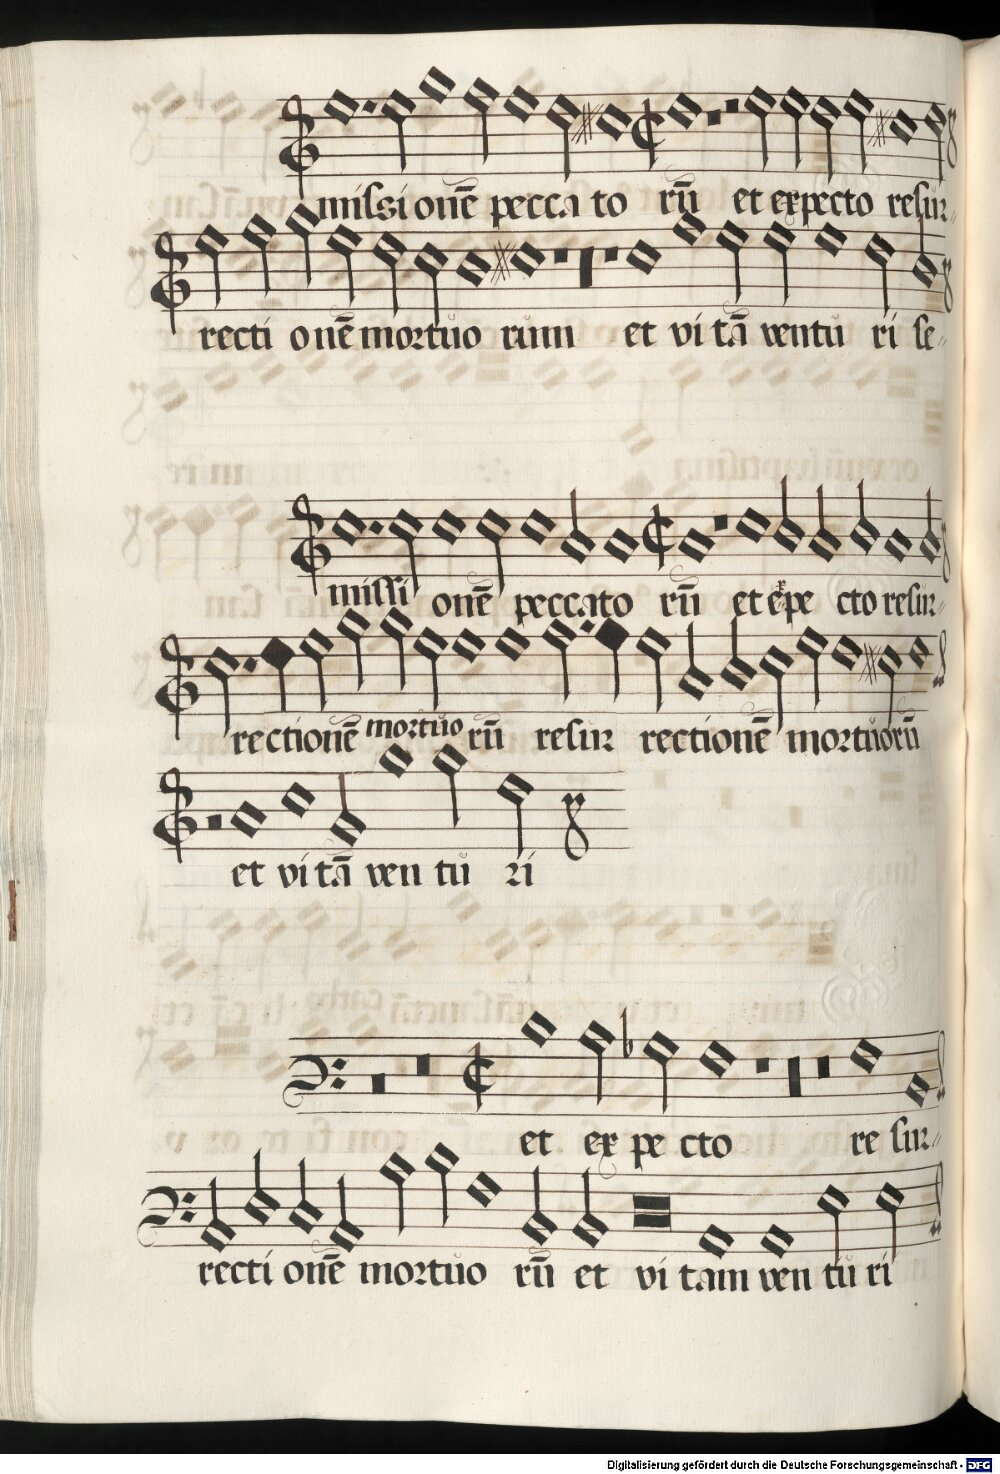 missi onē pecca to rū et expecto resur-
recti onē mortuo rum et vi tā ventu ri se-
missi onē peccato rū et expe cto resur-
rectionē mortuo rū resur rectionē mortuorū
et vi tā ven tu ri
et ex pe cto re sur-
recti onē mortuo rū et vi tam ven tu ri
Digitalisierung gefördert durch die Deutsche Forschungsgemeinschaft - DFG